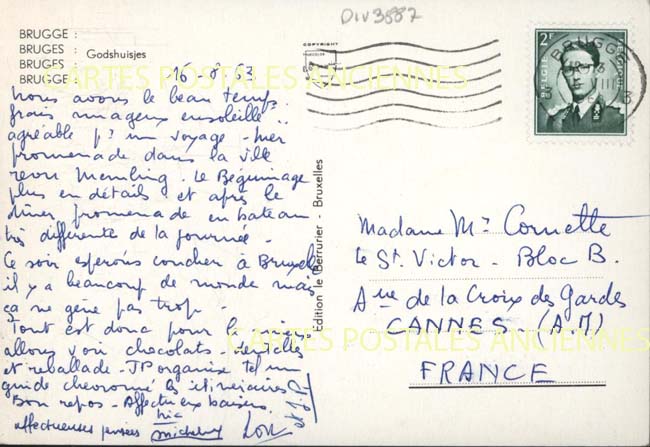 Div3887
BRUGGE :
BRUGES :
BRUGES :
BRUGGE :
Godshuisjes
COPYRIGHT
16 8 63
nous avons le beau temps
frais nuageux ensoleillé
agréable pr un voyage - hier
promenade dans la ville
revu Memling. le Béguinage
plus en détails et après le
dîner promenade en bateau
très différente de la journée.
Ce soir espérons coucher à Bruxelles
il y a beaucoup de monde mais
ça ne gêne pas trop.
Tout est donc pour le mieux
allons voir chocolats - dentelles
et reballade - JP organise tel un
guide chevronné les itinéraires
Bon repos - Affectueux baisers
affectueuses pensées
Edition le Berrurier - Bruxelles
2F
BELGIE BELGIQUE
BRUGGE
VIII
Madame Mce Cornette
Le St. Victor - Bloc B.
Aue de la Croix des Gardes
CANNES (A.M)
FRANCE
CARTES POSTALES ANCIENNES
CARTES POSTALES ANCIENNES